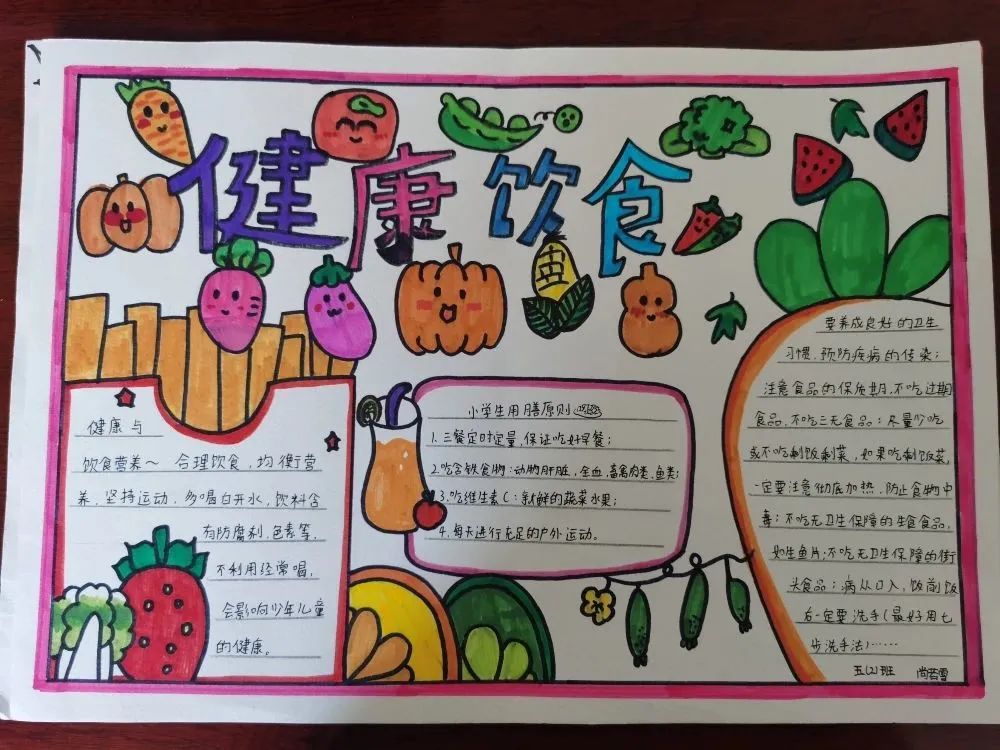 健康饮食
健康与
饮食营养～ 合理饮食，均衡营
养，坚持运动，多喝白开水，饮料含
有防腐剂，色素等，
不利用经常喝，
会影响少年儿童
的健康。
小学生用膳原则
1、三餐定时定量，保证吃好早餐；
2、吃含铁食物：动物肝脏，全血，畜禽肉类，鱼类；
3、吃维生素C：新鲜的蔬菜水果；
4、每天进行充足的户外运动。
要养成良好的卫生
习惯，预防疾病的传染；
注意食品的保质期，不吃过期
食品，不吃三无食品；尽量少吃
或不吃剩饭剩菜，如果吃剩饭菜，
一定要注意彻底加热，防止食物中
毒；不吃无卫生保障的生食食品，
如生鱼片；不吃无卫生保障的街
头食品；病从口入，饭前饭
后一定要洗手（最好用七
步洗手法）……
五(2)班 尚若雪